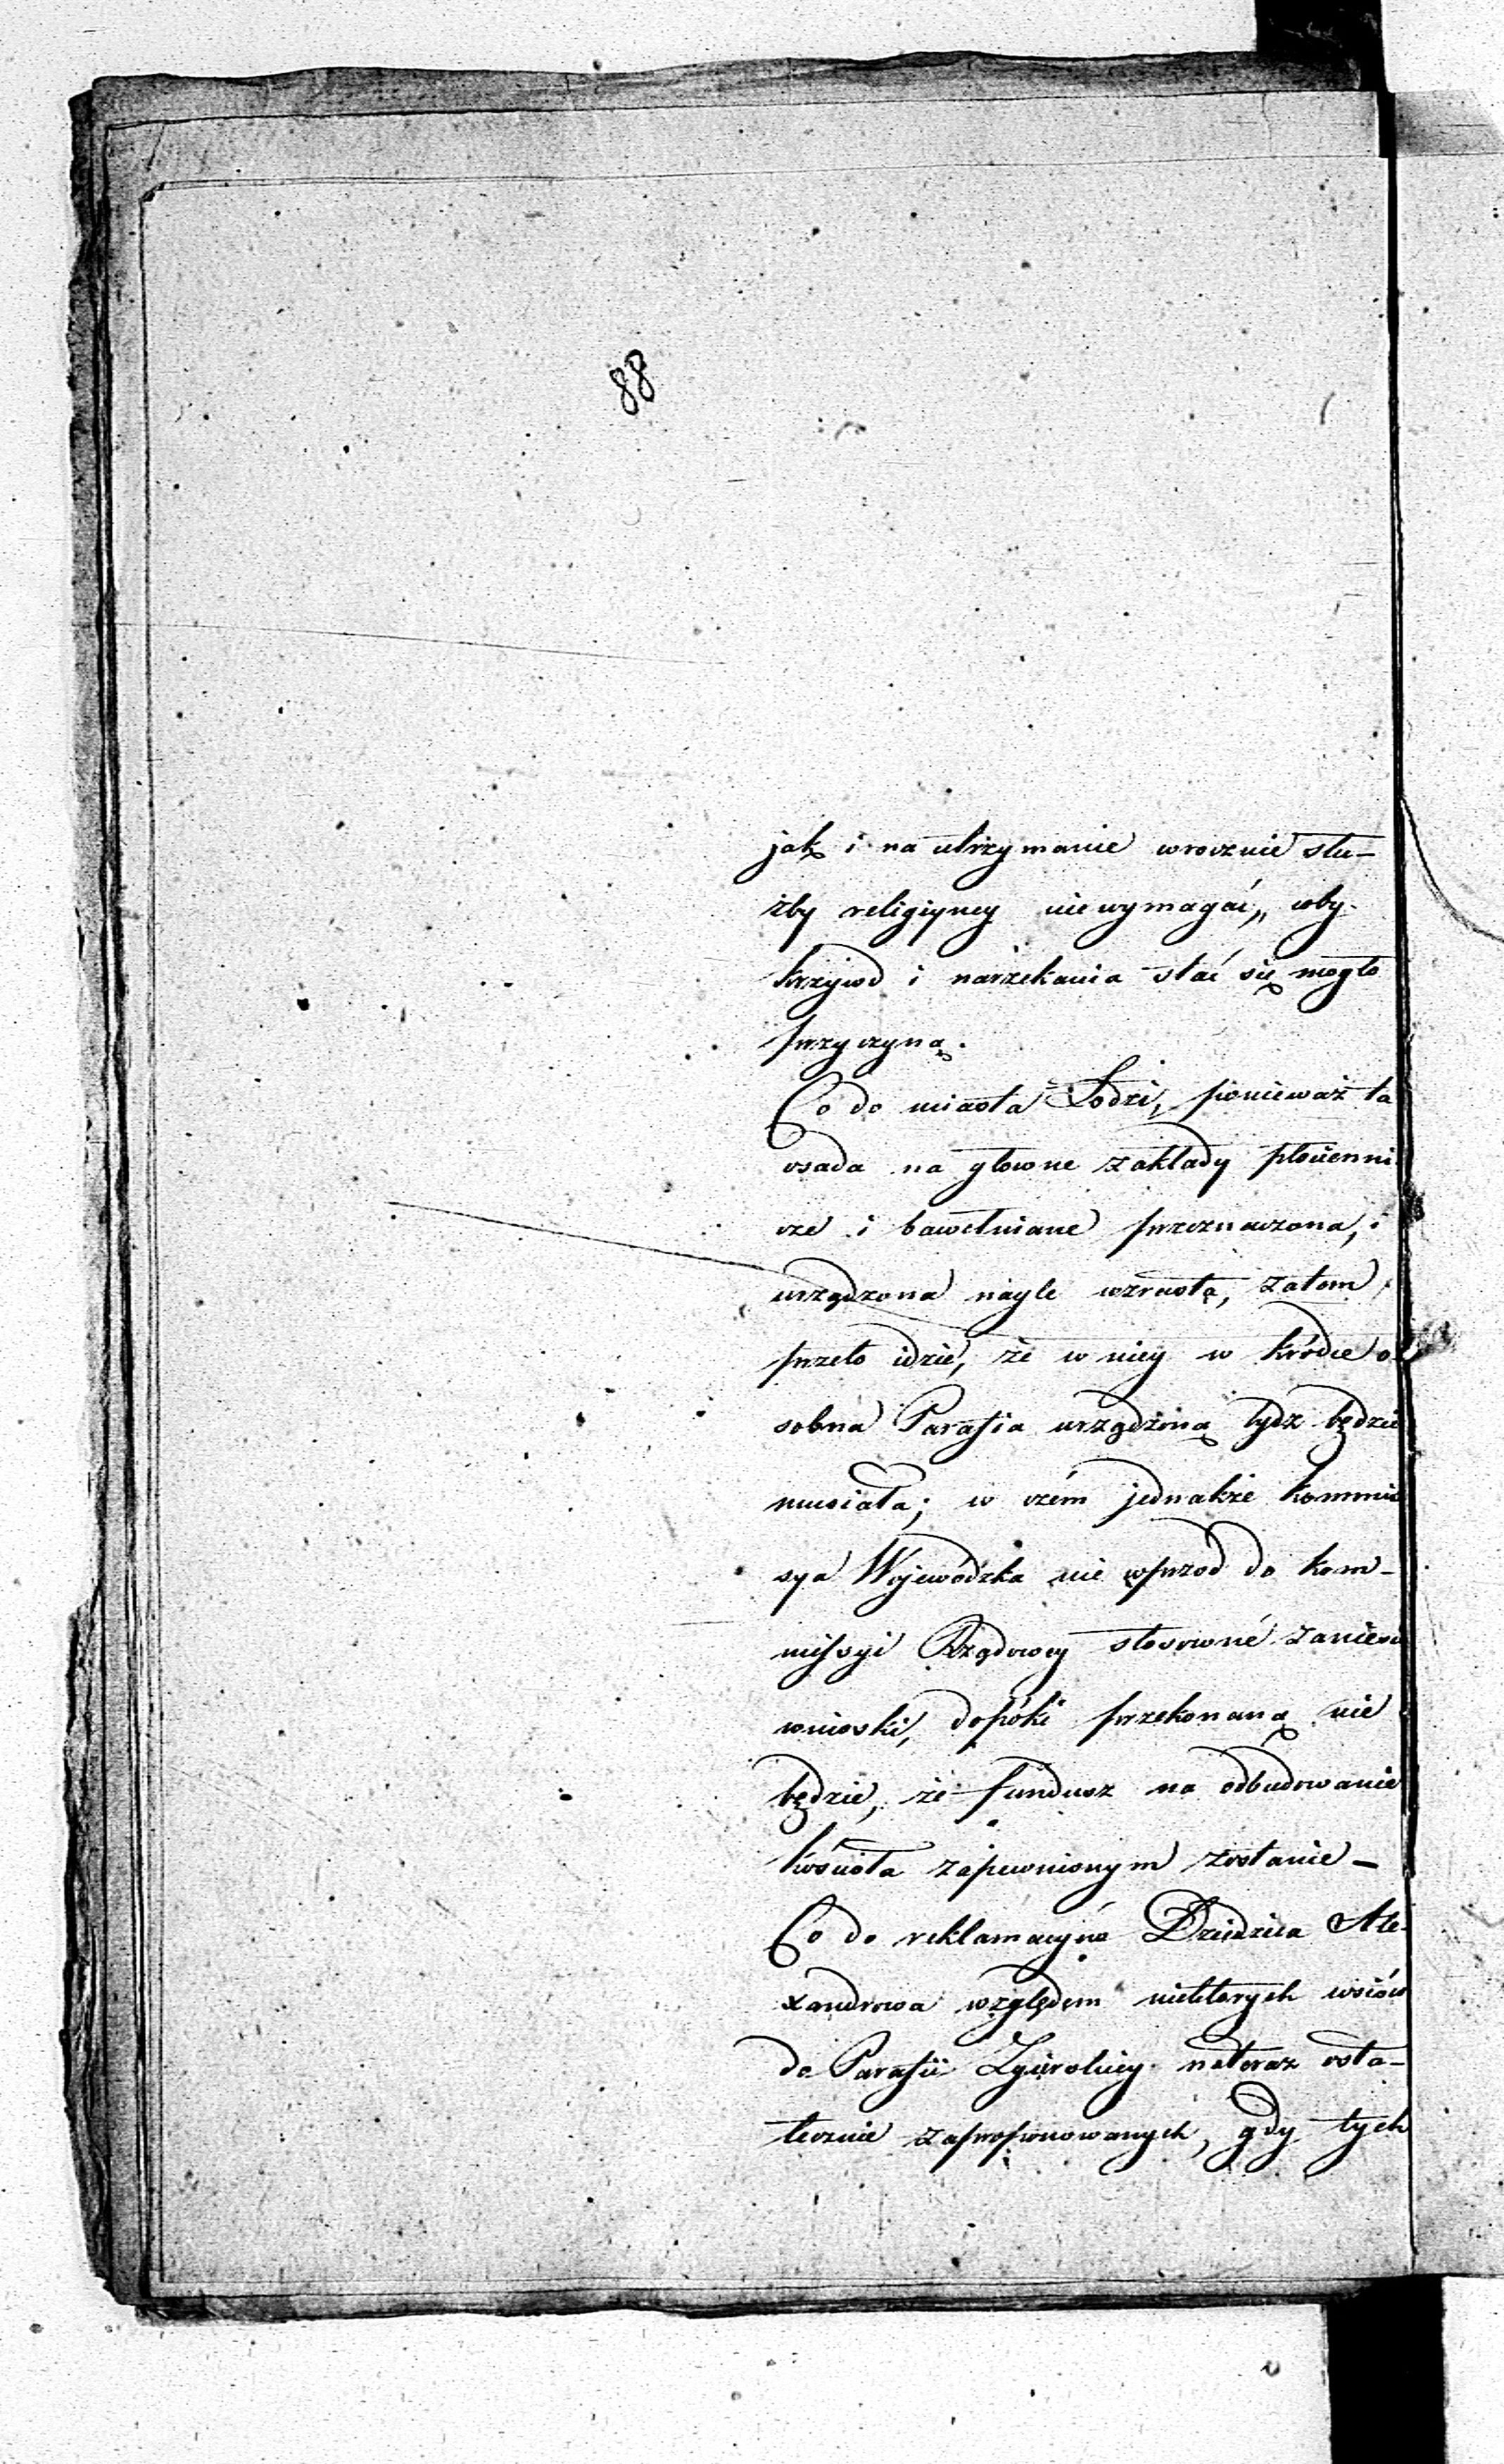 88
jak i na utrzymanie wrocznie słu-
żby religiyney niewymagać, coby
krzywd i narzekania stać się mogło
przyczyną.
Co do miasta Łodzi, ponieważ ta
osada na głowne zakłady płócienni
cze i bawełniane przeznaczona, i
urządzona nagle wzrosła, zatem
przeto idzie, że w niey w krótce o-
sobna Parafia urządzoną bydz będzie
musiała; w czém jednakże Kommis
sya Wojewódzka nie wprzod do Kom-
missyi Rządowey stosowné zaniesie
wnioski, dopóki przekonaną nie
będzie, że fundusz na odbudowanie
kościoła zapewnionym zostanie –
Co do reklamacyiné Dziedzica Ale-
xandrowa względem niektorych wsiów
do Parafii Zgierskiey nateraz osta-
tecznie zaproponowanych, gdy tych